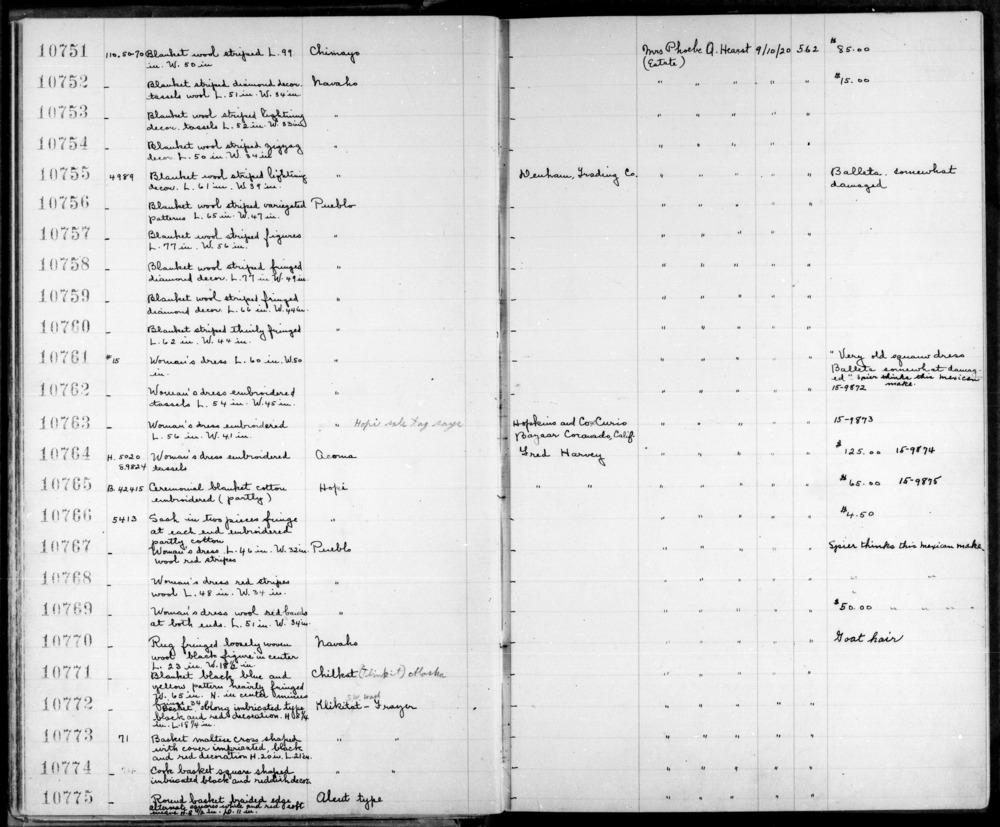 10751 110.50-70 Blanket wool striped L. 99 Chimayo Mrs Phoebe A. Hearst 9/10/20 562 $85.00
in. W. 50 in (Estate)
10752 - Blanket striped diamond decor. Navaho - " " " " $15.00
tassels wool L. 51 in. W. 34 in
10753 - Blanket wool striped lightning " - " " " "
decor. tassels L. 52 in. W. 33 in
10754 - Blanket wool striped zigzag " - " " " "
decor L. 50 in. W. 34 in
10755 4989 Blanket wool striped lighting " Denham, Trading Co. " " " " Balleta. somewhat
decor. L. 61 in. W. 39 in. damaged
10756 - Blanket wool striped variegated Pueblo - " " " "
patterns L. 65 in. W. 47 in.
10757 - Blanket wool striped figures " - " " " "
L. 77 in. W. 56 in.
10758 - Blanket wool striped fringed " - " " " "
diamond decor. L. 77 in W. 49 in.
10759 - Blanket wool striped fringed " - " " " "
diamond decor. L. 66 in. W. 44 in.
10760 - Blanket striped thinly fringed " - " " " "
L. 62 in. W. 44 in.
10761 #15 Woman's dress L. 60 in. W. 50 " - " " " " "Very old squaw dress
in. Balleta somewhat damag-
ed" Spier thinks this mexican make.
10762 - Woman's dress embroidered " - " " " " 15-9872
tassels L. 54 in. W. 45 in.
10763 - Woman's dress embroidered " Hopi sale tag says Hopkins and Co Curio " " " " 15-9873
L. 56 in. W. 41 in. Bazaar Coronado, Calif.
10764 H. 5020 Woman's dress embroidered Acoma Fred Harvey " " " " $125.00 15-9874
8.9824 tassels
10765 B. 42415 Ceremonial blanket cotton Hopi " " " " " " $65.00 15-9875
embroidered (partly)
10766 5413 Sash in two pieces fringe " - " " " " $4.50
at each end embroidered
partly cotton
10767 - Woman's dress. L. 46 in. W. 32 in. Pueblo - " " " " Spier thinks this mexican make
wool red stripes
10768 - Woman's dress red stripes " - " " " " " "
wool L. 48 in. W. 34 in.
10769 - Woman's dress wool red bands " - " " " " $50.00 " " " "
at both ends. L. 51 in. W. 34 in.
10770 - Rug fringed loosely woven Navaho - " " " " Goat hair
wool black figure in center
L. 23 in. W. 18½ in.
10771 - Blanket black blue and Chilkat (Tlinkit) Alaska - " " " "
yellow pattern heavily fringed
W. 65 in. H. in center minus
fringe 34
10772 - Basket oblong imbricated type Klikitat - Frazer - " " " "
black and red decoration. H 8¾
in. L. 18¾ in.
10773 71 Basket maltese cross shaped " " - " " " "
with cover imbricated, black
and red decoration H. 20 in. L. 21 in.
10774 Cook basket square shaped " " - " " " "
imbricated black and reddish decor.
10775 - Round basket braided edge Aleut type - " " " "
alternate squares white and red soft
weave H. 8½ in. D. 11 in.